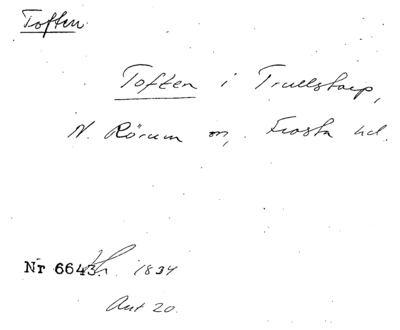 Toften
Toften i Trullstorp,
N. Rörum sn, Frosta hd.
Nr 6643. 1834
Ant 20.